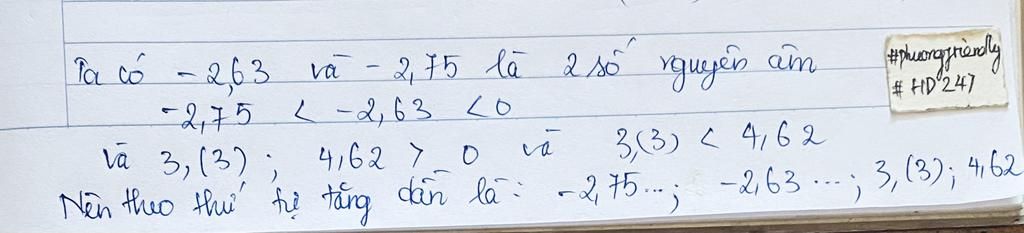 Ta có -2,63 và -2,75 là 2 số nguyên âm
-2,75 < -2,63 < 0
và 3,(3) ; 4,62 > 0 và 3,(3) < 4,62
Nên theo thứ tự tăng dần là: -2,75...; -2,63...; 3,(3); 4,62
#phuongfriendly
# HD247